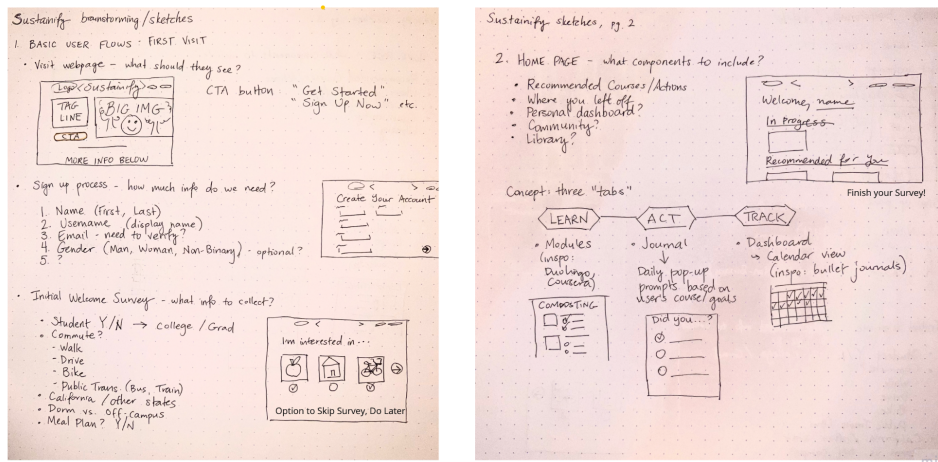 Sustainify brainstorming/sketches
1. BASIC USER FLOWS - FIRST VISIT
• Visit webpage - what should they see?
Logo <Sustainify>
TAG LINE
BIG IMG
CTA
MORE INFO BELOW
CTA button "Get Started"
"Sign Up Now" etc.
• Sign up process - how much info do we need?
1. Name (First, Last)
2. Username (display name)
3. Email - need to verify?
4. Gender (Man, Woman, Non-Binary) - optional?
5. ?
Create Your Account
• Initial Welcome Survey - what info to collect?
• Student Y/N → college / Grad
• Commute?
- Walk
- Drive
- Bike
- Public Trans. (Bus, Train)
• California / other states
• Dorm vs. Off-campus
• Meal Plan? Y/N
I'm interested in...
Option to Skip Survey, Do Later
Sustainify sketches, pg. 2
2. HOME PAGE - what components to include?
• Recommended Courses/Actions
• Where you left off
• Personal dashboard?
• Community?
• Library?
Welcome, name
In Progress
Recommended for You
Finish your Survey!
Concept: three "tabs"
LEARN
ACT
TRACK
• Modules
(inspo:
Duolingo,
Coursera)
COMPOSTING
• Journal
↓
Daily pop-up
prompts based on
user's course/goals
Did you...?
• Dashboard
↳ Calendar view
(inspo: bullet journals)